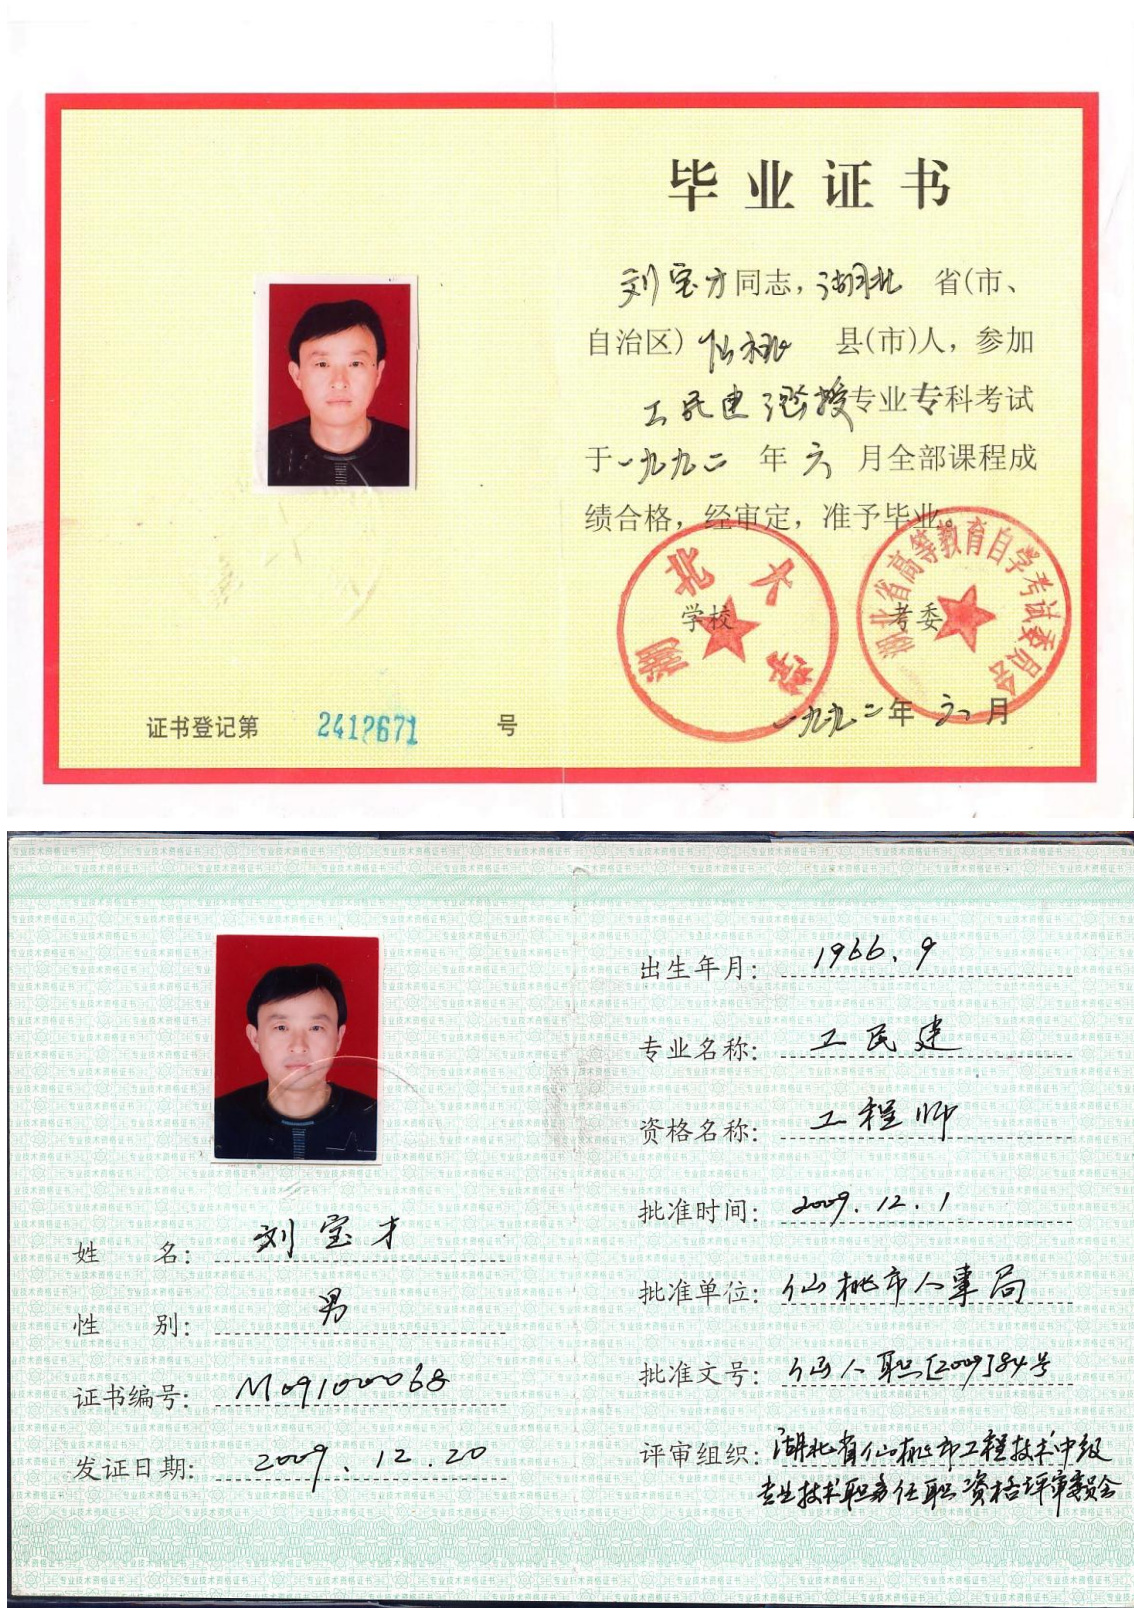 毕业证书
刘宝才同志，湖北 省(市、
自治区) 仙桃 县(市)人，参加
工民建函授专业专科考试
于一九九二 年 六 月全部课程成
绩合格，经审定，准予毕业。
湖北大学
学校
湖北省高等教育自学考试委员会
考委
一九九二年 六 月
证书登记第 2412671 号
姓 名： 刘宝才
性 别： 男
证书编号： M09100068
发证日期： 2009.12.20
出生年月： 1966.9
专业名称： 工民建
资格名称： 工程师
批准时间： 2009.12.1
批准单位： 仙桃市人事局
批准文号： 仙人职[2009]84号
评审组织： 湖北省仙桃市工程技术中级
专业技术职务任职资格评审委员会